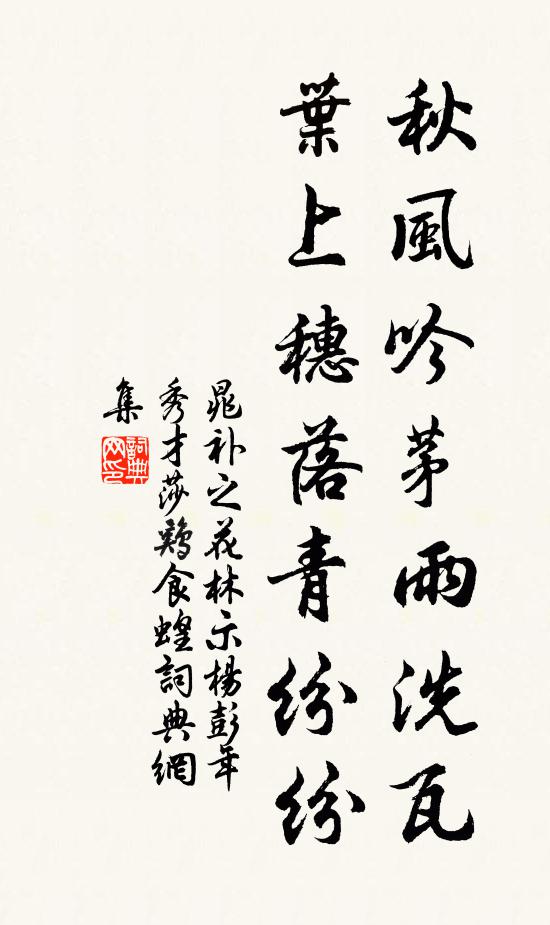 秋風吟茅雨洗瓦
葉上穗落青紛紛
晁补之花林示楊彭年
秀才莎鷄食蝗詞典網
集
詞典网印